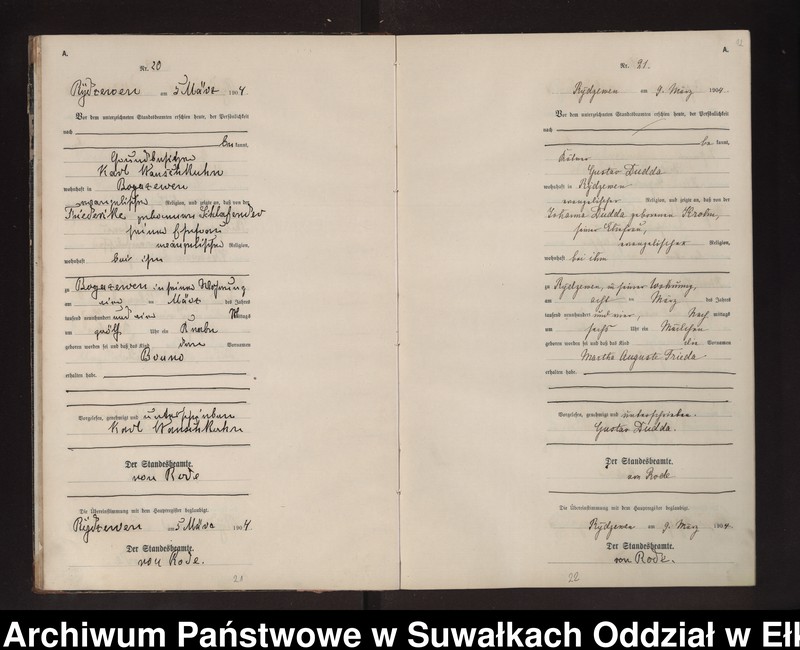 A.
Nr. 20
Rydzewen am 5 März 1904.
Vor dem unterzeichneten Standesbeamten erschien heute, der Persönlichkeit
nach
be kannt,
Grundbesitzer
Karl Wauschkuhn
wohnhaft in Bogazewen
evangelischer Religion, und zeigte an, daß von der
Friederike geborenen
seiner Ehefrau
evangelischer Religion,
wohnhaft bei ihm
zu Bogazewen in seiner Wohnung
am ein en März des Jahres
tausend neunhundert und vier mittags
um Uhr ein Knabe
geboren worden sei und daß das Kind den Vornamen
Bruno
erhalten habe.
Vorgelesen, genehmigt und unterschrieben
Karl Wauschkuhn
Der Standesbeamte.
von Rode
Die Übereinstimmung mit dem Hauptregister beglaubigt.
Rydzewen am 5 März 1904.
Der Standesbeamte.
von Rode.
21
A.
Nr. 21.
Rydzewen am 9. März 1904.
Vor dem unterzeichneten Standesbeamten erschien heute, der Persönlichkeit
nach
be kannt,
Kätner
Gustav Dudda
wohnhaft in Rydzewen
evangelischer Religion, und zeigte an, daß von der
Johanne Dudda geborenen Krohm,
seiner Ehefrau,
evangelischer Religion,
wohnhaft bei ihm
zu Rydzewen, in seiner Wohnung,
am acht en März des Jahres
tausend neunhundert und vier, Nach mittags
um sechs Uhr ein Mädchen
geboren worden sei und daß das Kind die Vornamen
Martha Auguste Frieda
erhalten habe.
Vorgelesen, genehmigt und unterschrieben.
Gustav Dudda.
Der Standesbeamte.
von Rode
Die Übereinstimmung mit dem Hauptregister beglaubigt.
Rydzewen am 9. März 1904.
Der Standesbeamte.
von Rode.
22
Archiwum Państwowe w Suwałkach Oddział w Ełk